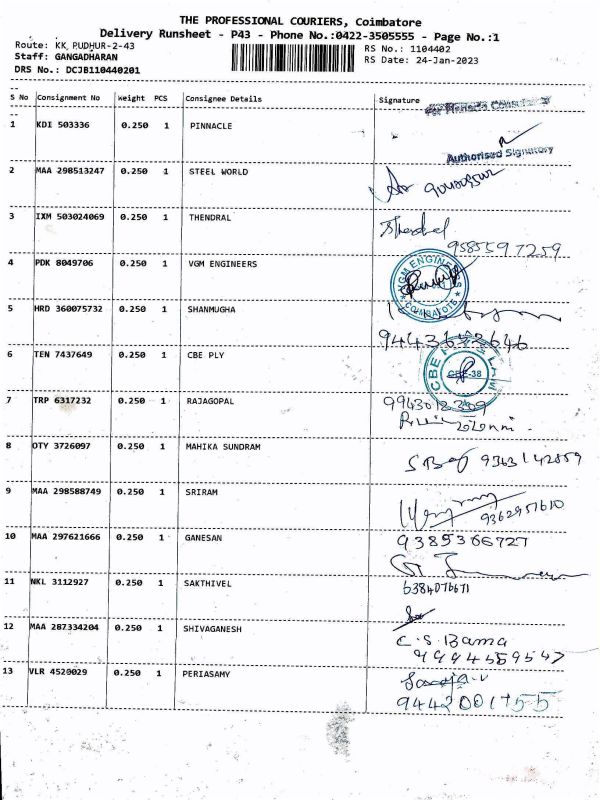 THE PROFESSIONAL COURIERS, Coimbatore
Delivery Runsheet - P43 - Phone No.:0422-3505555 - Page No.:1
Route: KK, PUDHUR-2-43 RS No.: 1104402
Staff: GANGADHARAN RS Date: 24-Jan-2023
DRS No.: DCJB110440201
S No Consignment No Weight PCS Consignee Details Signature
1 KDI 503336 0.250 1 PINNACLE
Authorised Signatory
2 MAA 298513247 0.250 1 STEEL WORLD
3 IXM 503024069 0.250 1 THENDRAL
9585597259
4 PDK 8049706 0.250 1 VGM ENGINEERS
VGM ENGINEERS
COIMBATORE
5 HRD 360075732 0.250 1 SHANMUGHA
6 TEN 7437649 0.250 1 CBE PLY
CBE-38
7 TRP 6317232 0.250 1 RAJAGOPAL
8 OTY 3726097 0.250 1 MAHIKA SUNDRAM
9363142859
9 MAA 298588749 0.250 1 SRIRAM
10 MAA 297621666 0.250 1 GANESAN 9385366727
11 NKL 3112927 0.250 1 SAKTHIVEL
12 MAA 287334204 0.250 1 SHIVAGANESH C.S. Bama
9994559547
13 VLR 4520029 0.250 1 PERIASAMY
9442001755